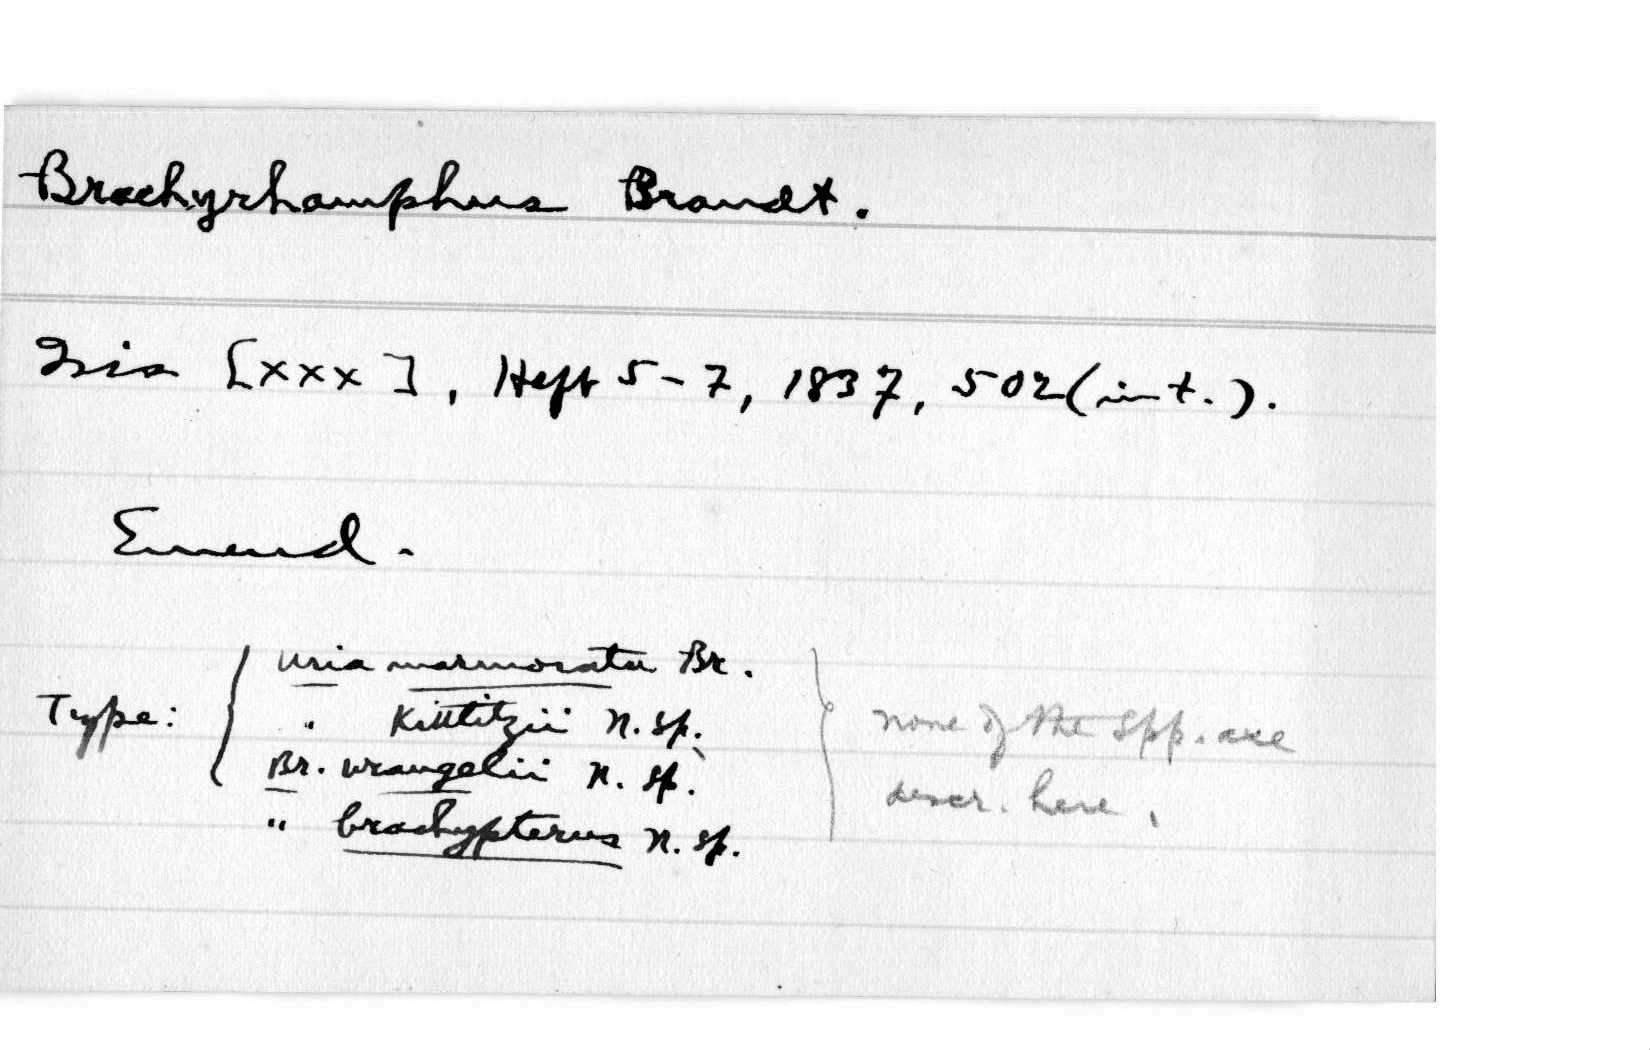 Brachyrhamphus Brandt.
Isis [xxx], Heft 5-7, 1837, 502 (int.).
Emend.
Type: { Uria marmorata Br.
" Kittlitzii n. sp.
Br. wrangelii n. sp.
" brachypterus n. sp. }
none of the spp. are
descr. here.